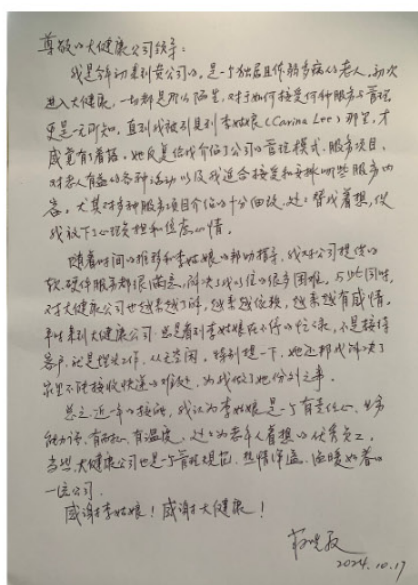 尊敬的大健康公司领导：
我是今年初来到贵公司的，是一个独居且体弱多病的老人，初次
进入大健康，一切都是那么陌生，对于如何接受何种服务与管理
更是一无所知。直到我被引见到李姑娘（Carina Lee）那里，才
感觉有了着落。她反复给我介绍了公司的管理模式、服务项目、
对老人有益的各种活动以及我适合接受和安排哪些服务内
容，尤其对多种服务项目介绍的十分细致，处处替我着想，使
我放下了心理负担和焦虑心情。
随着时间的推移和李姑娘的帮助指导，我对公司提供的
软、硬件服务都很满意，解决了我的很多困难，与此同时，
对大健康公司也越来越了解，越来越依赖，越来越有感情。
平时来到大健康公司，总是看到李姑娘在不停的忙碌，不是接待
客户，就是埋头工作，从无空闲。特别提一下，她还帮我解决了
家里不能接收快递的难处，为我做了她份外之事。
总之，近一年的接触，我认为李姑娘是一个有责任心、业务
能力强、有耐心、有温度、处处为老年人着想的优秀员工。
当然，大健康公司也是一个管理规范、热情洋溢、温暖如春的
一流公司。
感谢李姑娘！感谢大健康！
2024.10.17